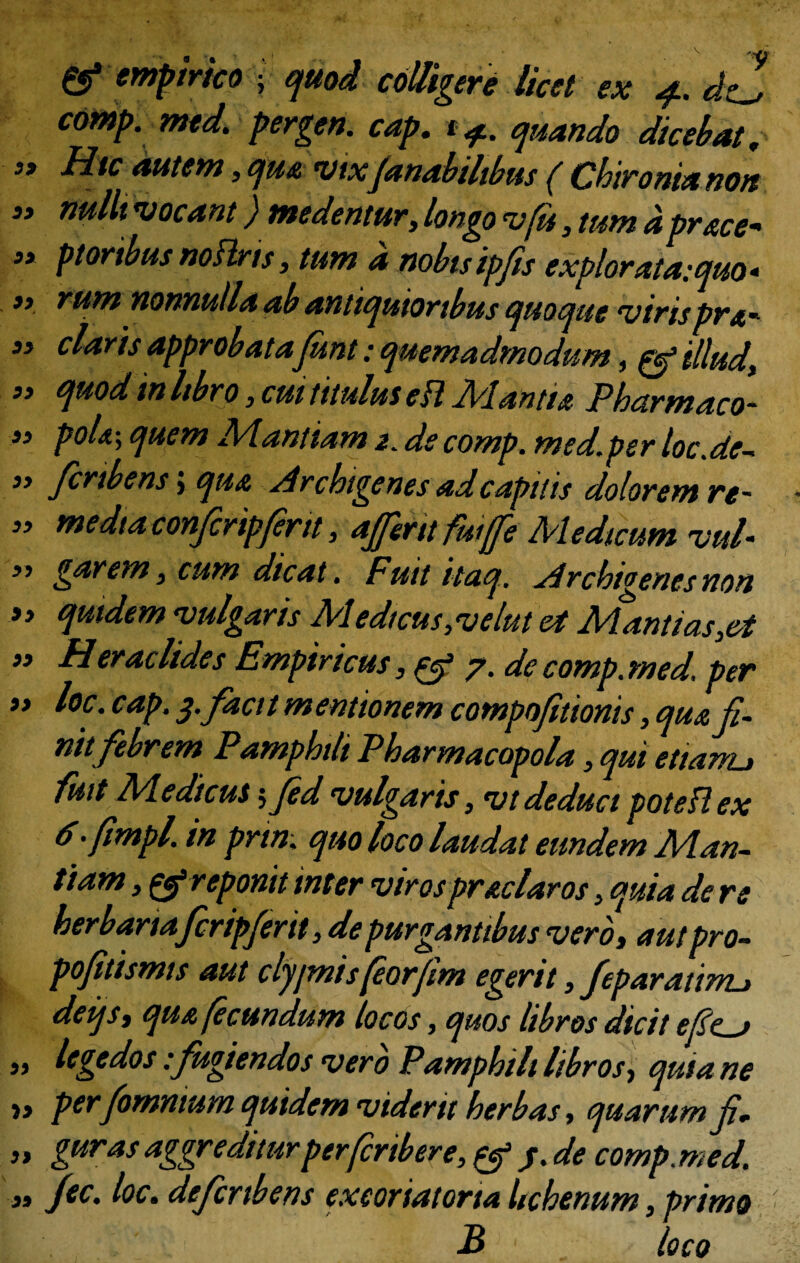 9
& empirico ; quod colligere licet ex 4. de
comp. med. pergen. cap. 14. quando dicebat.
„ Hic autem, quæ vix sanabilibus ( Chironia non
„ nulli vocant ) medentur, longo vsu, tum à præce-
„ ptoribus nostris, tum à nobis ipsis explorata: quo-
„ rum nonnulla ab antiquioribus quoque viris præ-
„ claris approbata sunt: quemadmodum, & illud,
„ quod in libro, cui titulus est Mantiæ Pharmaco-
„ polæ; quem Mantiam 2. de comp. med. per loc. de-
„ scribens; quæ Archigenes ad capitis dolorem re-
„ media conscripserit, asserit fuisse Medicum vul-
„ garem, cum dicat. Fuit itaq. Archigenes non
„ quidem vulgaris Medicus, velut et Mantias, et
„ Heraclides Empiricus, & 7. de comp. med. per
„ loc. cap. 3. facit mentionem compositionis, quæ fi-
nit febrem Pamphili Pharmacopola, qui etiam
fuit Medicus; sed vulgaris, vt deduci potest ex
6. simpl. in prin. quo loco laudat eundem Man-
tiam, & reponit inter viros præclaros, quia de re
herbaria scripserit, de purgantibus verò, aut pro-
positismis aut clysmis seorsim egerit, separatim
deijs, quæ secundum locos, quos libros dicit esse
„ legedos: fugiendos verò Pamphili libros, quia ne
„ per somnium quidem viderit herbas, quarum fi-
„ guras aggreditur perscribere, & 5. de comp. med.
„ sec. loc. describens excoriatoria lichenum, primo
B loco